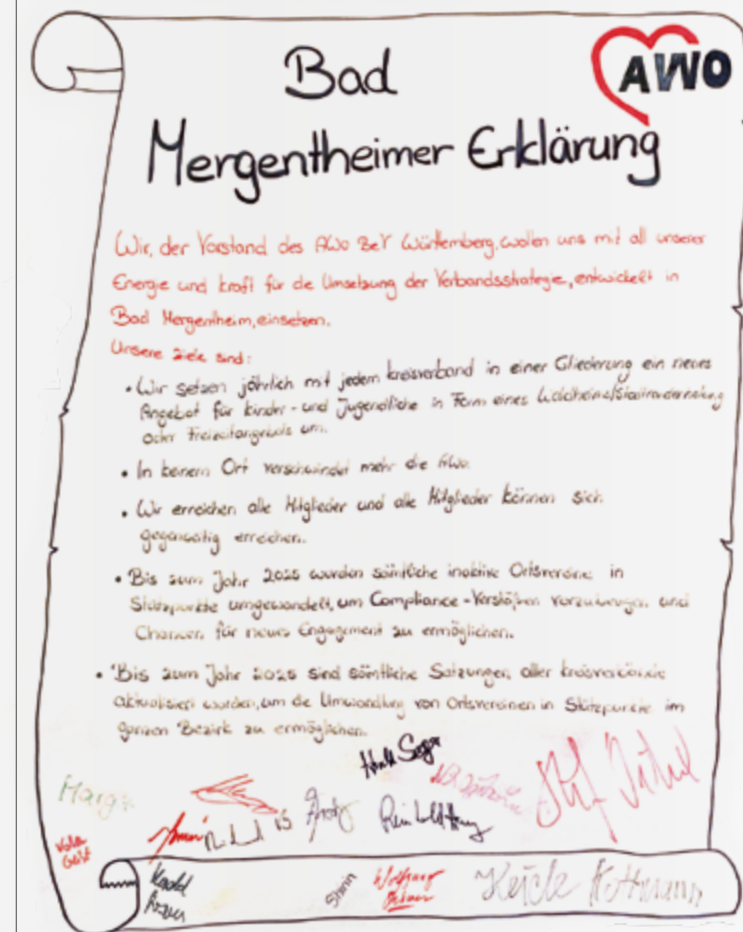 Bad
AWO
Mergentheimer Erklärung
Wir, der Vorstand des AWO BeV Württemberg, wollen uns mit all unserer
Energie und Kraft für die Umsetzung der Verbandsstrategie, entwickelt in
Bad Mergentheim, einsetzen.
Unsere Ziele sind:
• Wir setzen jährlich mit jedem Kreisverband in einer Gliederung ein neues
Angebot für Kinder- und Jugendliche in Form eines
oder Freizeitangebots um.
• In keinem Ort verschwindet mehr die AWO.
• Wir erreichen alle Mitglieder und alle Mitglieder können sich
gegenseitig erreichen.
• Bis zum Jahr 2025 wurden sämtliche inaktive Ortsvereine in
Stützpunkte umgewandelt, um Compliance-Verstößen vorzubeugen und
Chancen für neues Engagement zu ermöglichen.
• Bis zum Jahr 2025 sind sämtliche Satzungen aller Kreisverbände
aktualisiert worden, um die Umwandlung von Ortsvereinen in Stützpunkte im
ganzen Bezirk zu ermöglichen.
Wolfgang